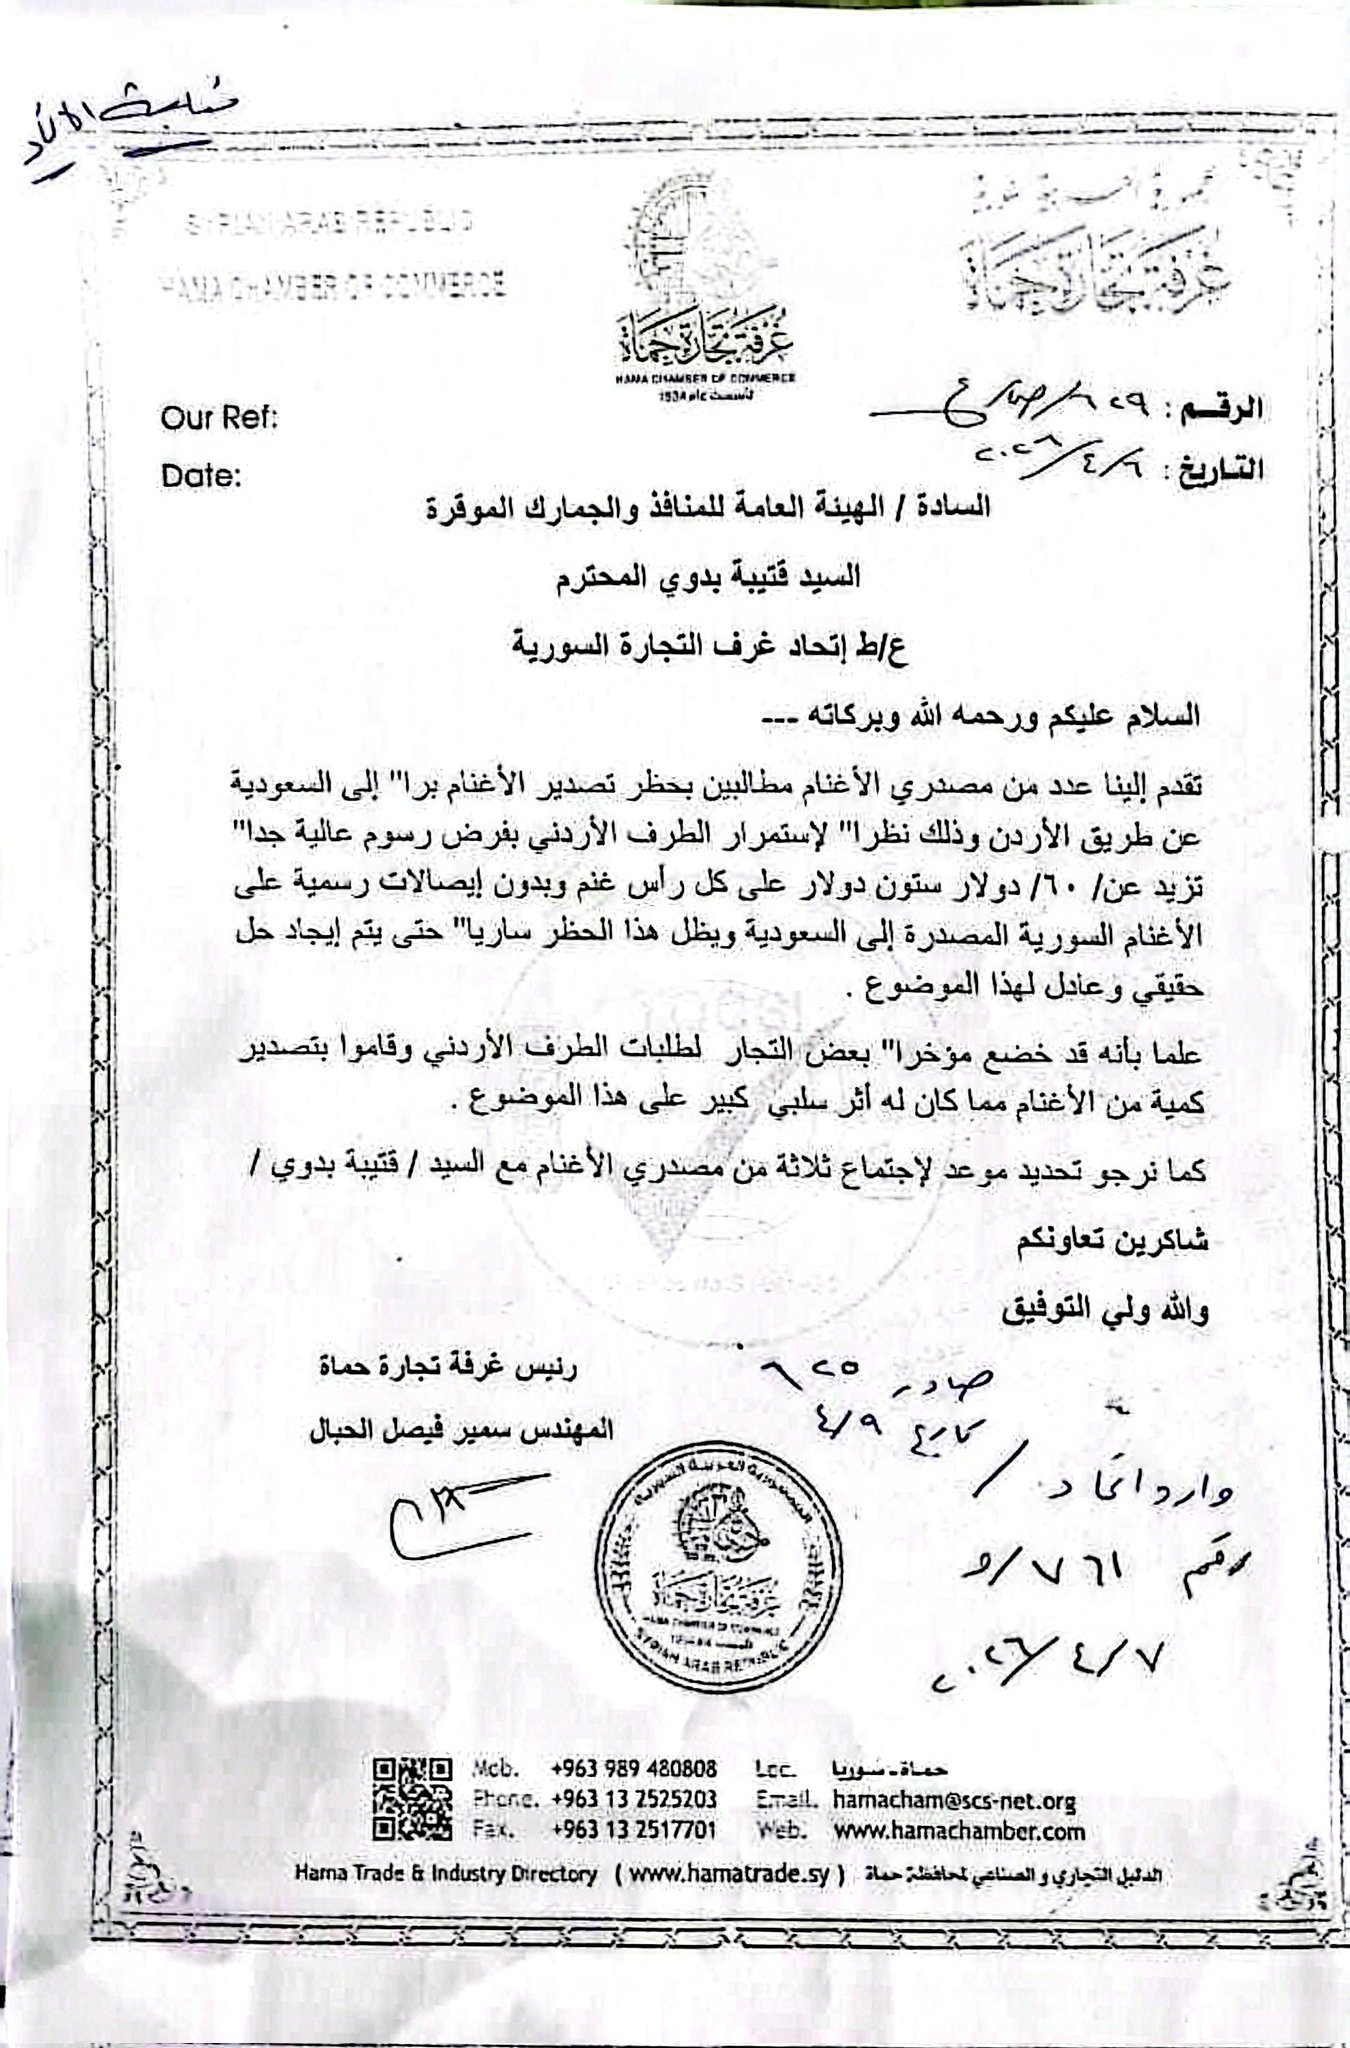 متابعة الاتحاد
SYRIAN ARAB REPUBLIC
HAMA CHAMBER OF COMMERCE
غرفة تجارة حماة
غرفة تجارة حماة
HAMA CHAMBER OF COMMERCE
تأسست عام 1934
Our Ref:
الرقم : ٦٢٩/ص/غ
Date:
التاريخ : ٢٠٢٦/٤/٦
السادة / الهيئة العامة للمنافذ والجمارك الموقرة
السيد قتيبة بدوي المحترم
ع/ط إتحاد غرف التجارة السورية
السلام عليكم ورحمه الله وبركاته ---
تقدم إلينا عدد من مصدري الأغنام مطالبين بحظر تصدير الأغنام برا" إلى السعودية
عن طريق الأردن وذلك نظرا" لإستمرار الطرف الأردني بفرض رسوم عالية جدا"
تزيد عن/ ٦٠/ دولار ستون دولار على كل رأس غنم وبدون إيصالات رسمية على
الأغنام السورية المصدرة إلى السعودية ويظل هذا الحظر ساريا" حتى يتم إيجاد حل
حقيقي وعادل لهذا الموضوع .
علما بأنه قد خضع مؤخرا" بعض التجار لطلبات الطرف الأردني وقاموا بتصدير
كمية من الأغنام مما كان له أثر سلبي كبير على هذا الموضوع .
كما نرجو تحديد موعد لإجتماع ثلاثة من مصدري الأغنام مع السيد / قتيبة بدوي /
شاكرين تعاونكم
والله ولي التوفيق
رئيس غرفة تجارة حماة
المهندس سمير فيصل الحبال
صادر ٦٢٥
تاريخ ٤/٩
وارد اتحاد /
رقم ٧٦١/و
٢٠٢٦/٤/٧
الجمهورية العربية السورية
غرفة تجارة حماة
HAMA CHAMBER OF COMMERCE
SYRIAN ARAB REPUBLIC
Mob. +963 989 480808
Phone. +963 13 2525203
Fax. +963 13 2517701
Loc. حماة - سوريا
Email. hamacham@scs-net.org
Web. www.hamachamber.com
Hama Trade & Industry Directory ( www.hamatrade.sy ) الدليل التجاري و الصناعي لمحافظة حماة